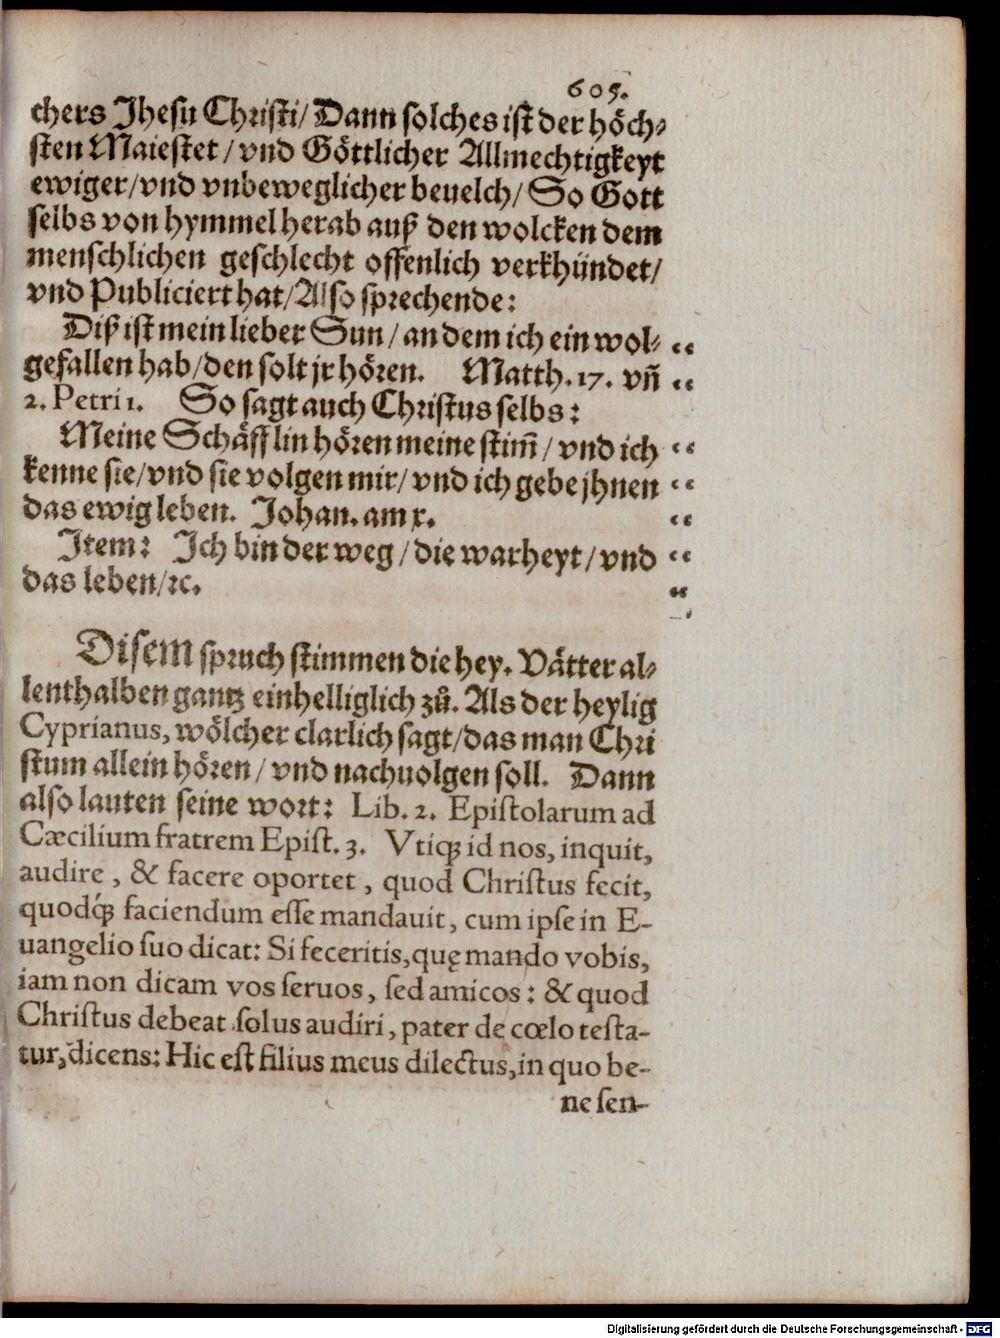 605.
chers Jhesu Christi/ Dann solches ist der höch⸗
sten Maiestet / vnd Göttlicher Allmechtigkeyt
ewiger/ vnd vnbeweglicher beuelch/ So Gott
selbs von hymmel herab auß den wolcken dem
menschlichen geschlecht offenlich verkhündet/
vnd Publiciert hat/ Also sprechende:
Diß ist mein lieber Sun / an dem ich ein wol⸗ “
gefallen hab/ den solt jr hören. Matth. 17. vñ “
2. Petri 1. So sagt auch Christus selbs:
Meine Schäfflin hören meine stim̃ / vnd ich “
kenne sie/ vnd sie volgen mir/ vnd ich gebe jhnen “
das ewig leben. Johan. am x. “
Item: Ich bin der weg / die warheyt / vnd “
das leben/ ꝛc. “
Disem spruch stimmen die hey. Vätter al⸗
lenthalben gantz einhelliglich zů. Als der heylig
Cyprianus, wölcher clarlich sagt/ das man Chri
stum allein hören / vnd nachuolgen soll. Dann
also lauten seine wort: Lib. 2. Epistolarum ad
Cæcilium fratrem Epist. 3. Vtiqꝫ id nos, inquit,
audire, & facere oportet, quod Christus fecit,
quodq́ꝫ faciendum esse mandauit, cum ipse in E-
uangelio suo dicat: Si feceritis, quę mando vobis,
iam non dicam vos seruos, sed amicos: & quod
Christus debeat solus audiri, pater de cœlo testa-
tur, dicens: Hic est filius meus dilectus, in quo be-
ne sen-
Digitalisierung gefördert durch die Deutsche Forschungsgemeinschaft - DFG